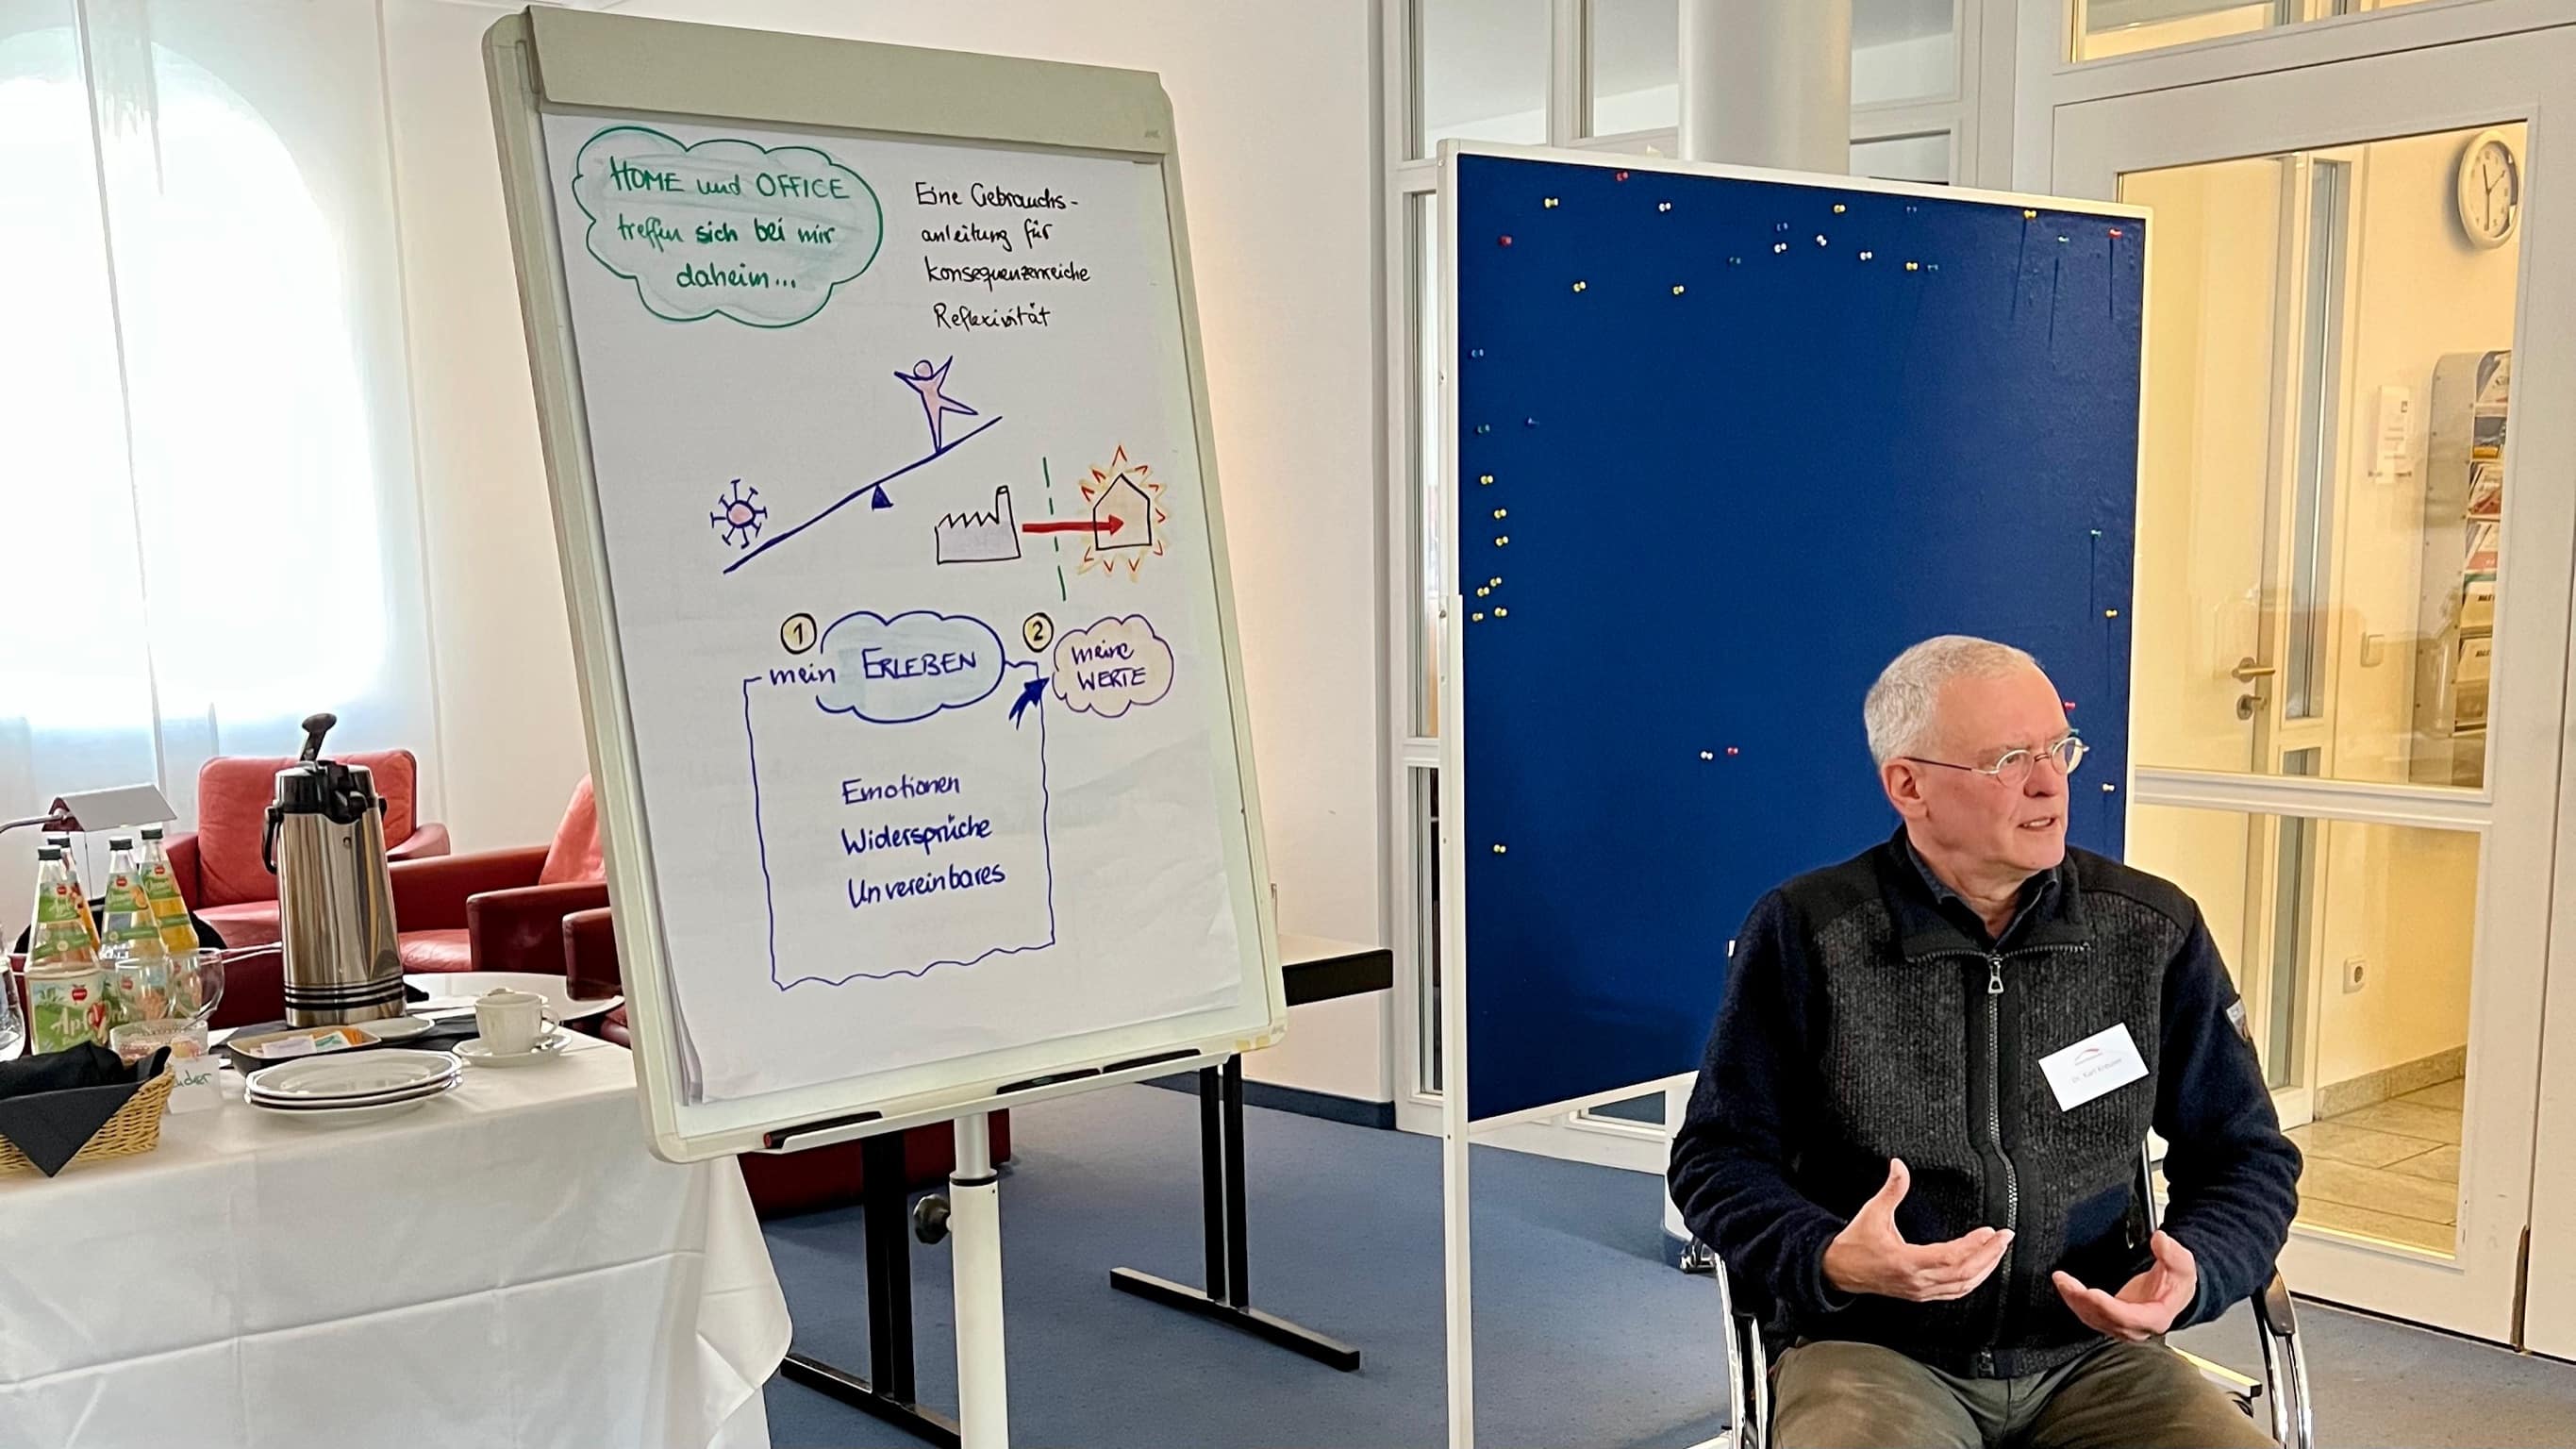 HOME und OFFICE
treffen sich bei mir
daheim...
Eine Gebrauchs-
anleitung für
konsequenzenreiche
Reflexivität
1
mein ERLEBEN
2
meine
WERTE
Emotionen
Widersprüche
Unvereinbares